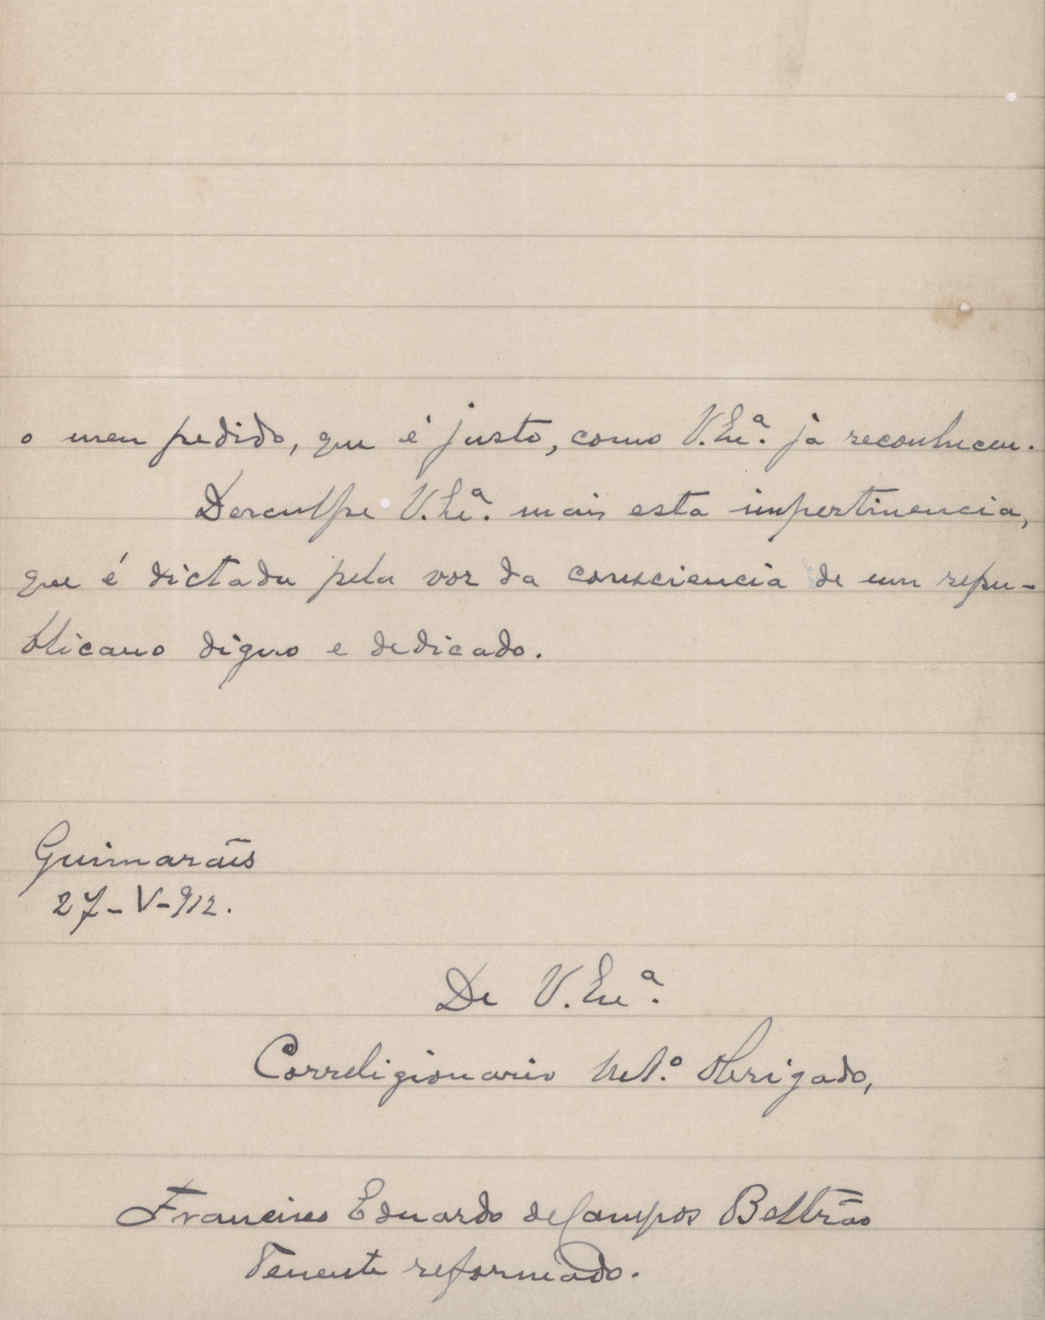 o meu pedido, que é justo, como V. Exª. já reconheceu.
Desculpe V. Exª. mais esta impertinencia,
que é dictada pela voz da consciencia de um repu-
blicano digno e dedicado.
Guimarãis
27-V-912.
De V. Exª.
Correligionario Mtº. Obrigado,
Francisco Eduardo de Campos Beltrão
Tenente reformado.